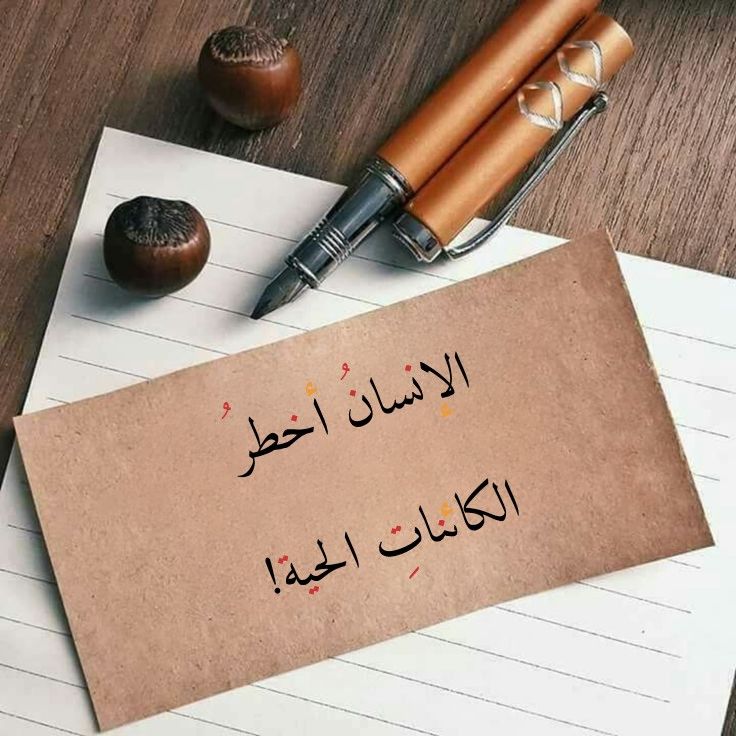 الإنسانُ أخطرُ
الكائناتِ الحية!